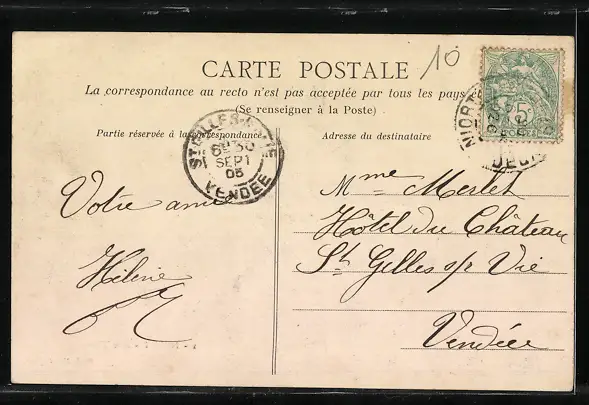 10
CARTE POSTALE
La correspondance au recto n'est pas acceptée par tous les pays
(Se renseigner à la Poste)
Partie réservée à la correspondance
Adresse du destinataire
ST GILLES
6E 30
SEPT
05
VENDÉE
NIORT
5c
POSTES
Votre amie
Hélène
Mme Merlet
Hôtel du Château
St Gelles s/r Vie
Vendée